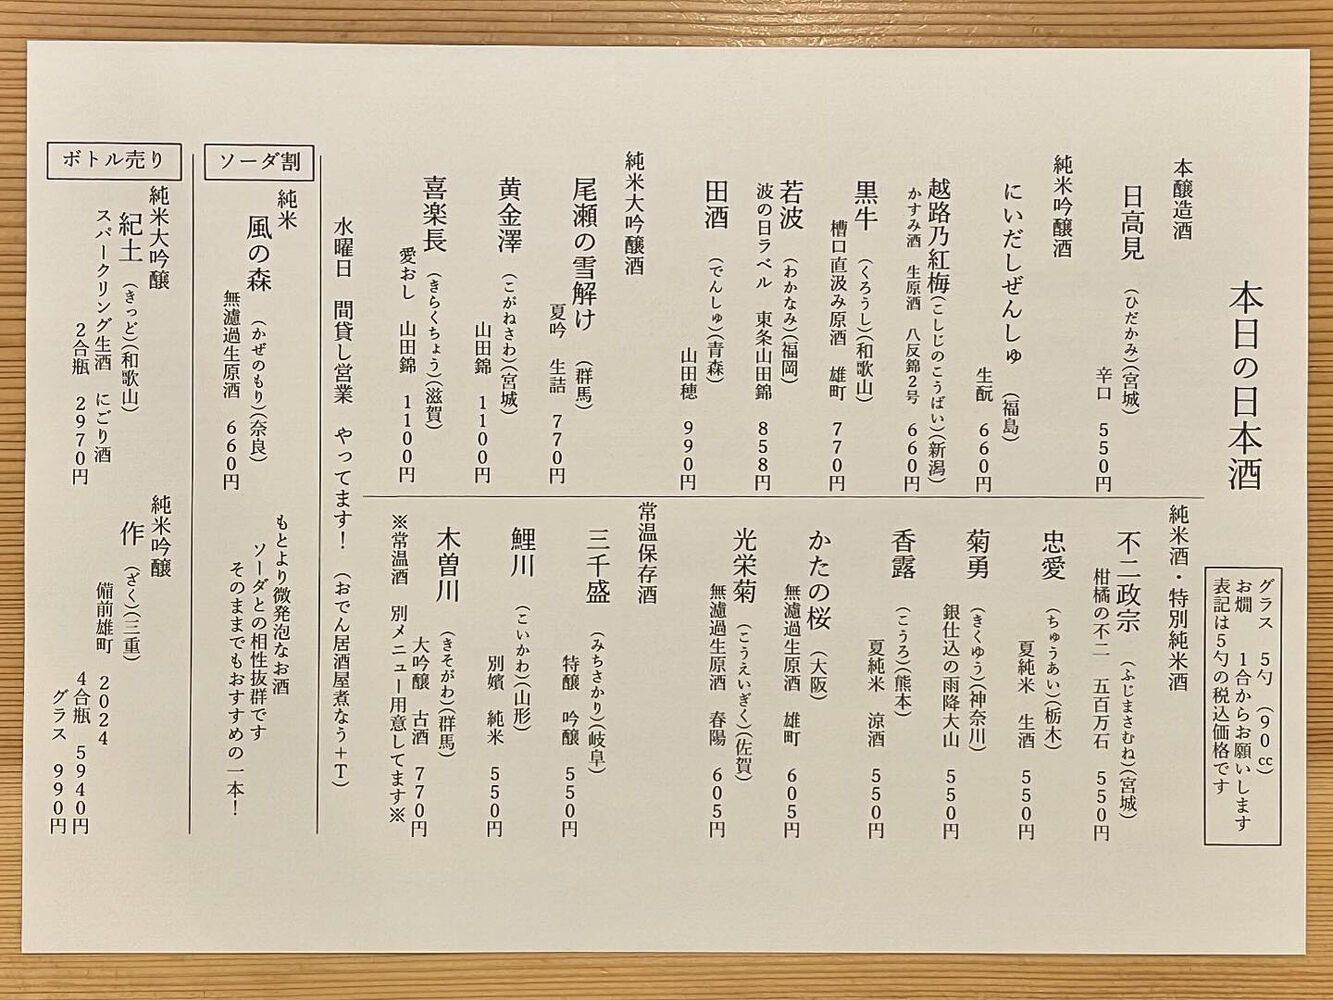 本日の日本酒
グラス　5勺　（90㏄）
お燗　1合からお願いします
表記は5勺の税込価格です
本醸造酒
日高見　（ひだかみ）（宮城）
辛口　550円
純米吟醸酒
にいだしぜんしゅ　（福島）
生酛　660円
越路乃紅梅（こしじのこうばい）（新潟）
かすみ酒　生原酒　八反錦2号　660円
黒牛　（くろうし）（和歌山）
槽口直汲み原酒　雄町　770円
若波　（わかなみ）（福岡）
波の日ラベル　東条山田錦　858円
田酒　（でんしゅ）（青森）
山田穂　990円
純米大吟醸酒
尾瀬の雪解け　（群馬）
夏吟　生詰　770円
黄金澤　（こがねさわ）（宮城）
山田錦　1100円
喜楽長　（きらくちょう）（滋賀）
愛おし　山田錦　1100円
純米酒・特別純米酒
不二政宗　（ふじまさむね）（宮城）
柑橘の不二　五百万石　550円
忠愛　（ちゅうあい）（栃木）
夏純米　生酒　550円
菊勇　（きくゆう）（神奈川）
銀仕込の雨降大山　550円
香露　（こうろ）（熊本）
夏純米　涼酒　550円
かたの桜　（大阪）
無濾過生原酒　雄町　605円
光栄菊　（こうえいぎく）（佐賀）
無濾過生原酒　春陽　605円
常温保存酒
三千盛　（みちさかり）（岐阜）
特醸　吟醸　550円
鯉川　（こいかわ）（山形）
別嬪　純米　550円
木曽川　（きそがわ）（群馬）
大吟醸　古酒　770円
※常温酒　別メニュー用意してます※
水曜日　間貸し営業　やってます！　（おでん居酒屋煮なう＋T）
ソーダ割
純米
風の森　（かぜのもり）（奈良）
無濾過生原酒　660円
もとより微発泡なお酒
ソーダとの相性抜群です
そのままでもおすすめの一本！
ボトル売り
純米大吟醸
紀土　（きっど）（和歌山）
スパークリング生酒　にごり酒
2合瓶　2970円
純米吟醸
作　（ざく）（三重）
備前雄町　2024
4合瓶　5940円
グラス　990円